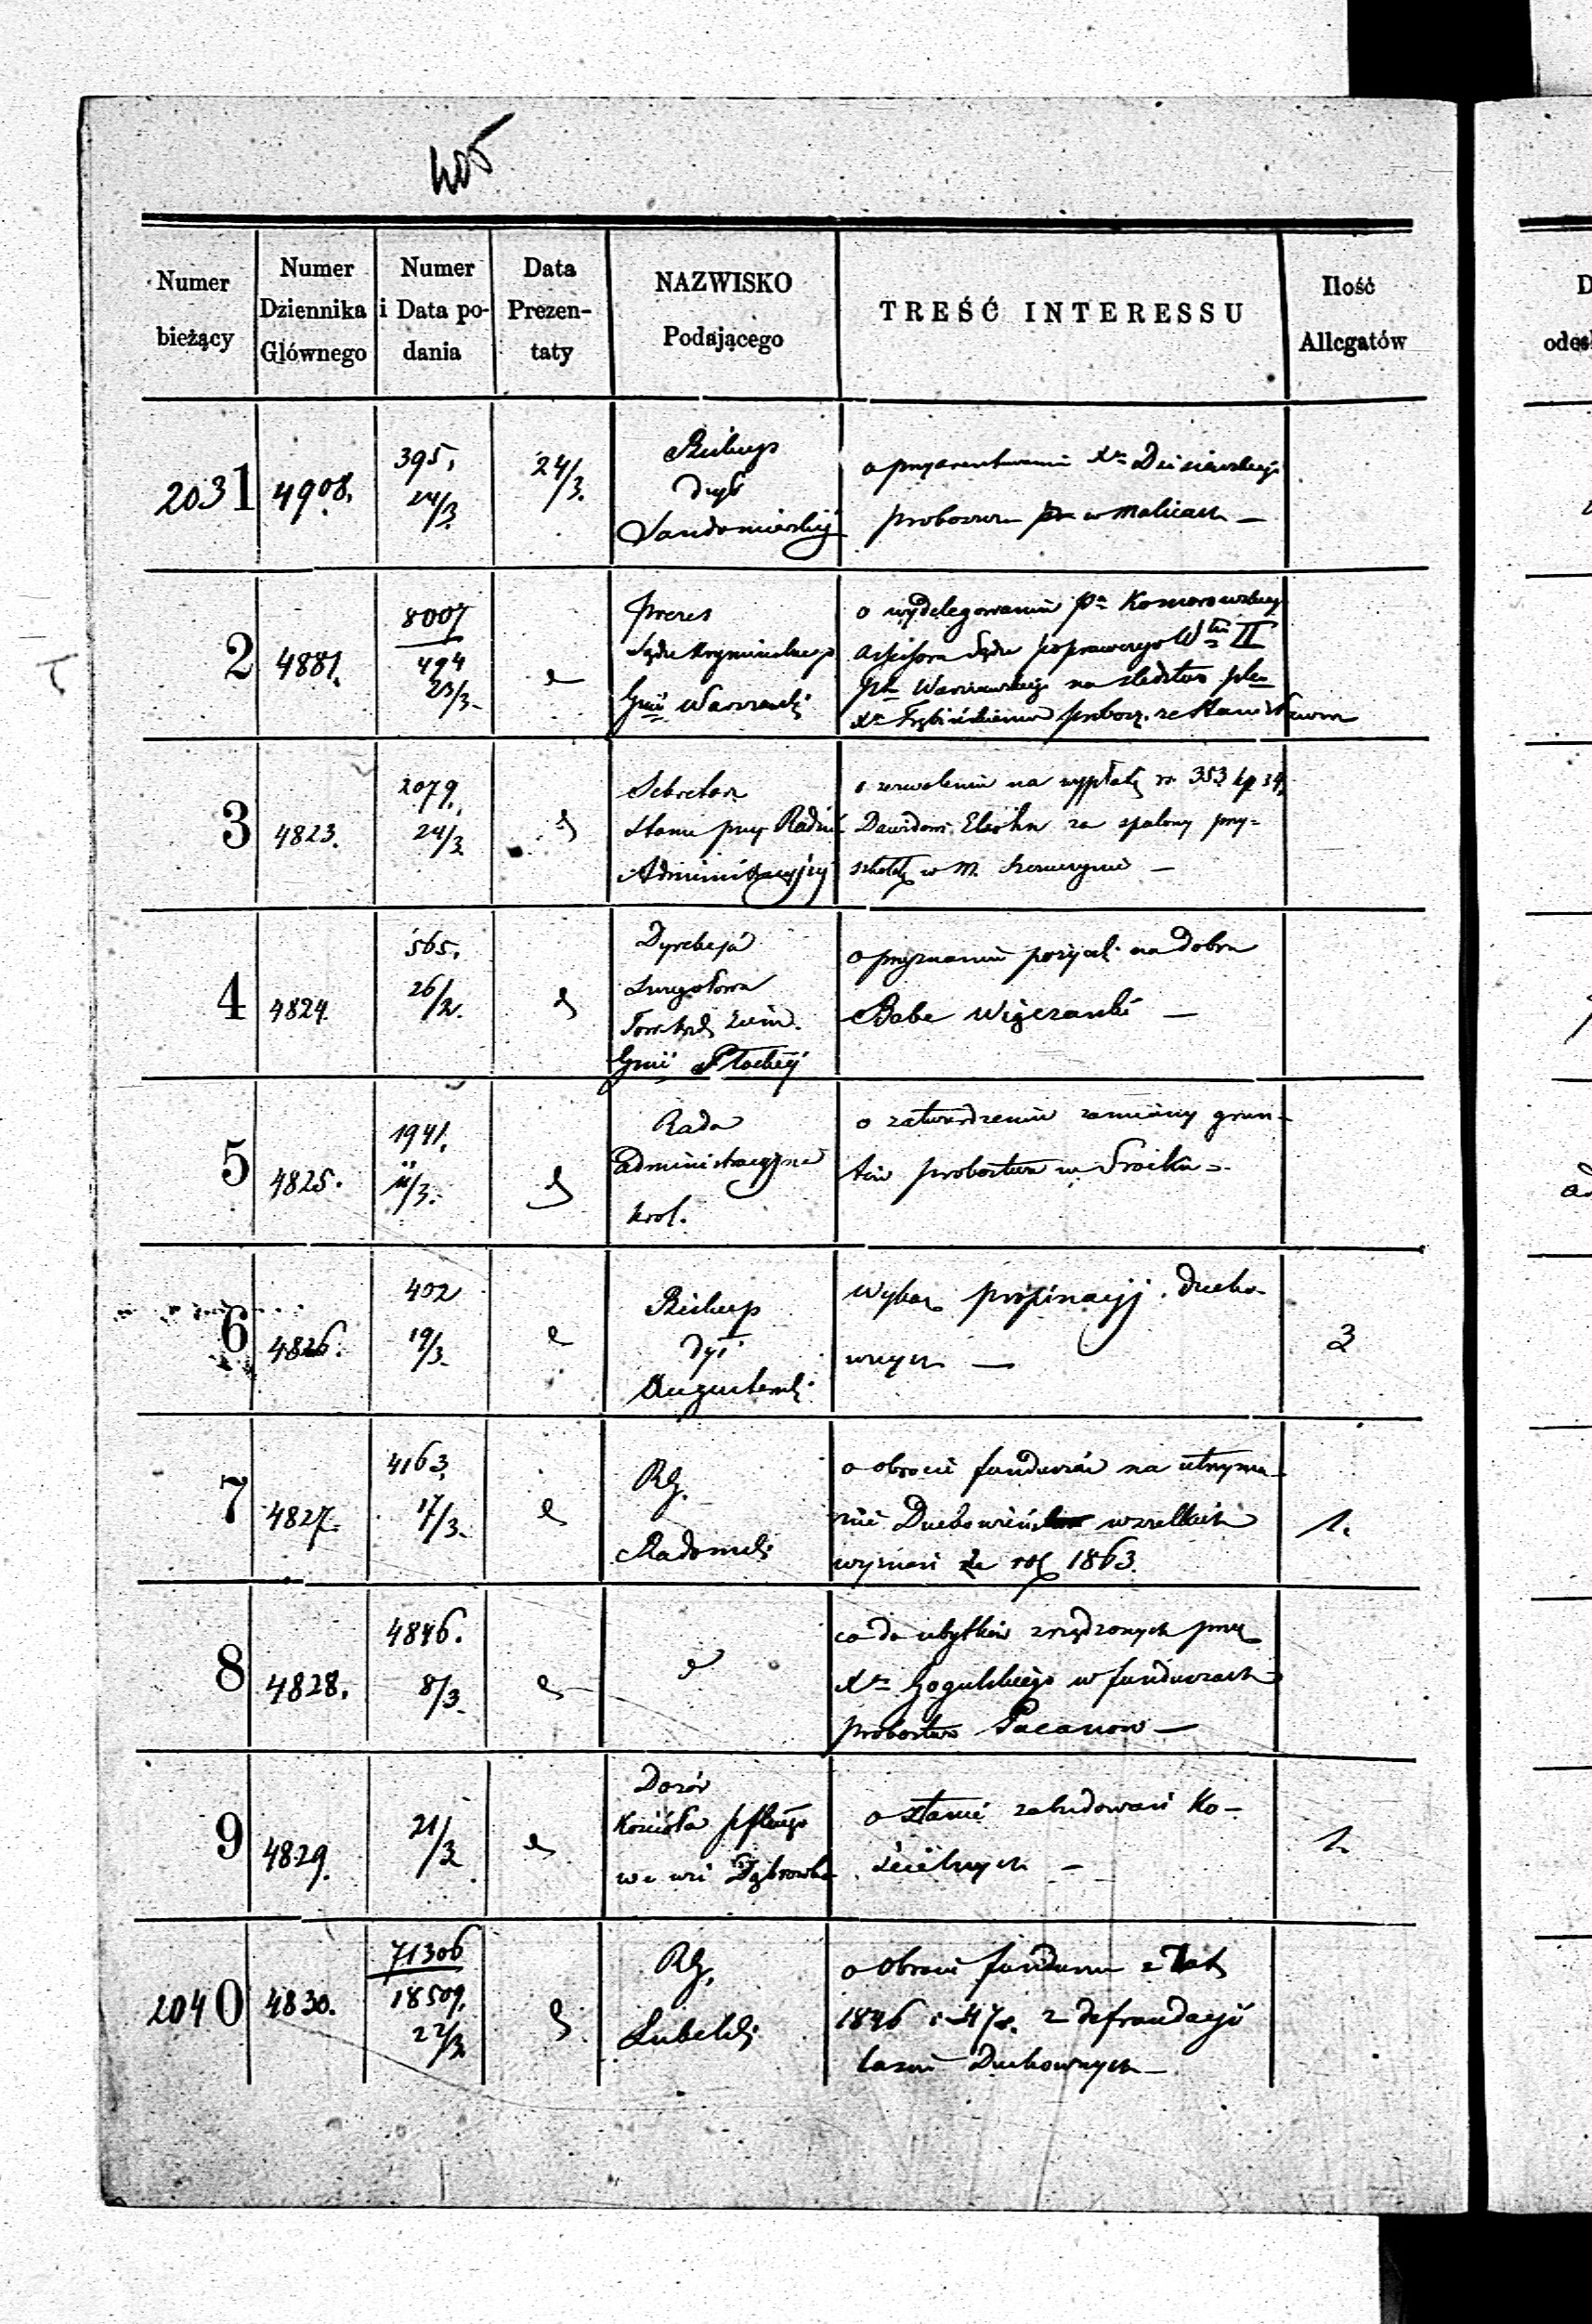 405
Numer bieżący
Numer Dziennika Głównego
Numer i Data podania
Data Prezentaty
NAZWISKO Podającego
TREŚĆ INTERESSU
Ilość Allegatów
2031 4908. 395, 24/3. 24/3.
Biskup
Dyec
Sandomierskiej
o Xa
probostwa w Malicach —
2 4881. 8007
494
23/3
Prezes
Sądu Kryminalnego
Gnii Warszawski
o wydelegowanie Pa Komorowskiego
Assessora Sądu poprawczego Włu II
Gn Warszawskiej na śledztwo
Xu proboszcz. ze Stanisławowa
3 4823. 2079. 24/3
Sekretarz
Stanu przy Radzie
Administracyjnej
o zezwolenie na wypłatę rs 353 kp 34,
Dawidowi za spalony przy-
w M.
4 4824. 565. 26/2.
Dyrekcja
Szczegółowa
Tow. Kred. Ziem.
Gnii Płockiej
o przyznanie pożycz. na dobra
Babe Więczanki —
5 4825. 1941. 11/3.
Rada
Administracyjna
Król.
o zatwierdzenie zamiany grun-
tów probostwa w
6 4826. 402 19/3.
Biskup
Dyec
Augustowski
Wykaz propinacyj. Ducho-
wnych — 3
7 4827. 4163. 17/3.
RG.
Radomski
o obrocie funduszów na utrzyma-
nie Duchowieństwa wszelkich
wyznań za rok 1863. 1.
8 4828. 4846. 8/3
co do ubytków zrządzonych przez
Xa Gogulskiego w funduszach
probostwa Pacanow —
9 4829. 21/3
Dozór
Kościoła
we wsi Dąbrowka
o stanie zabudowań Ko-
ścielnych — 1.
2040 4830. 71306
18509.
22/3.
RG.
Lubelski
o obrocie funduszu z lat
1846 i 47r. z defraudacji
lasów Duchownych —
D
odes